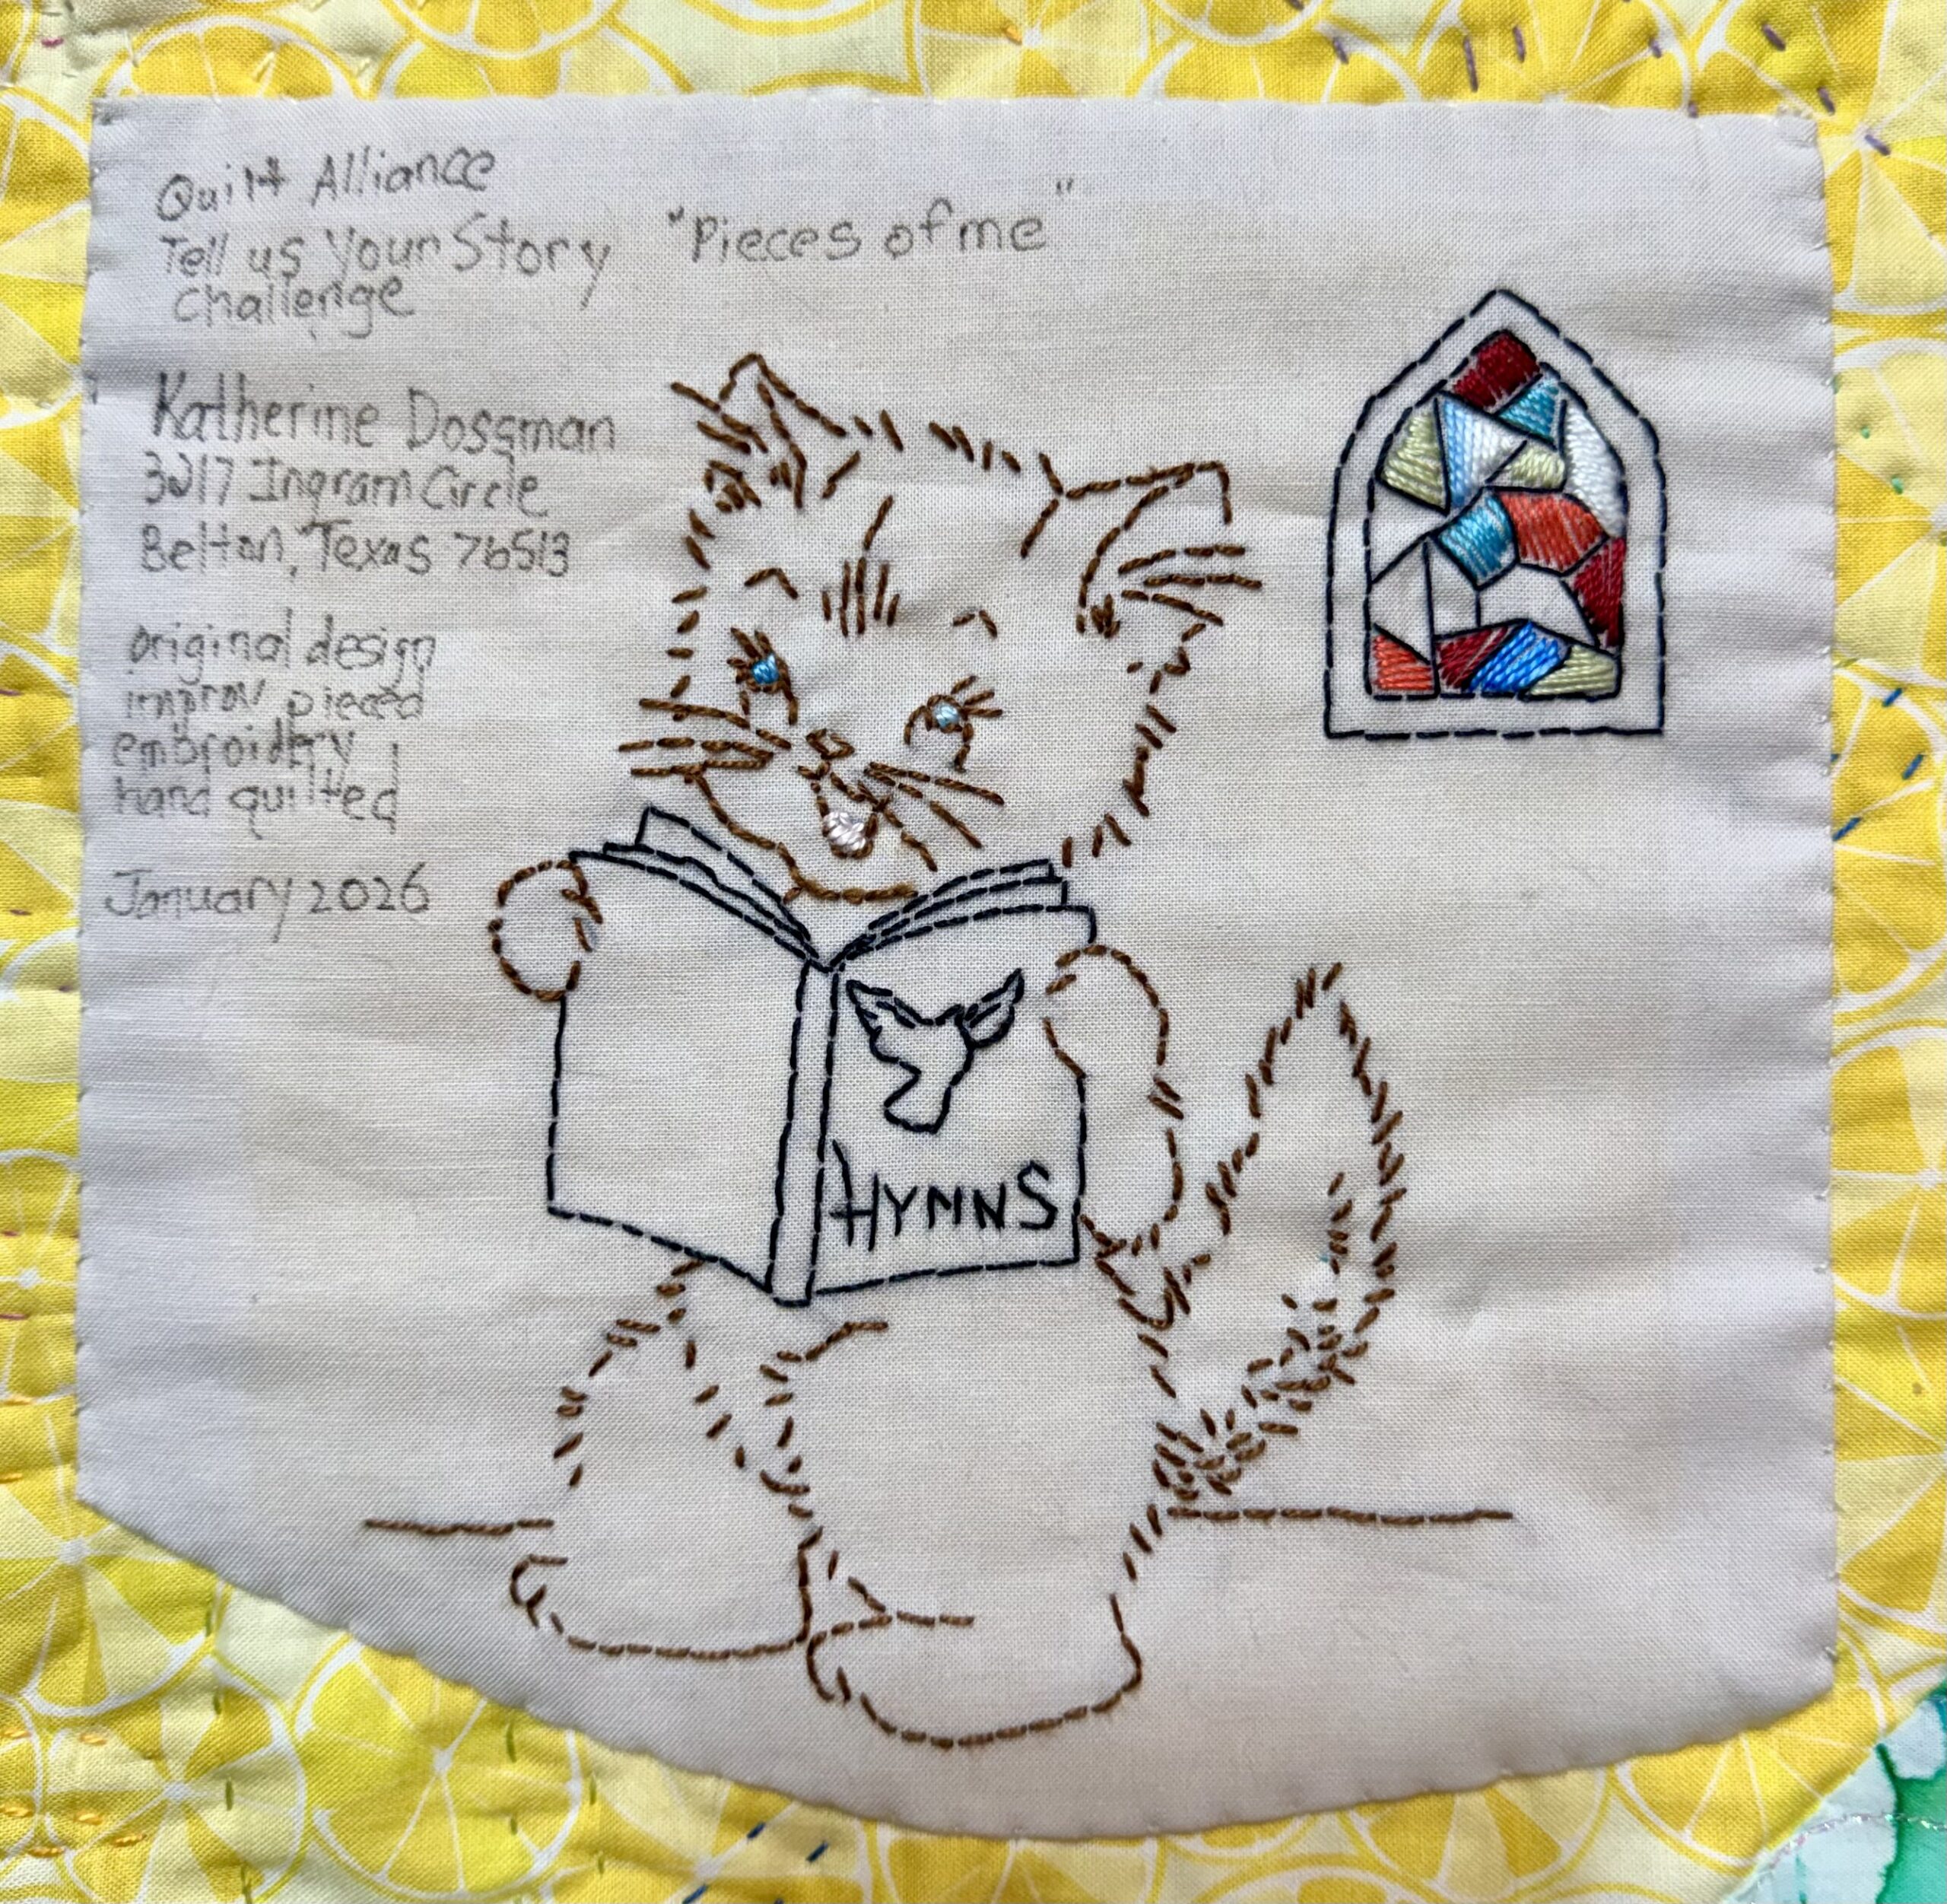 Quilt Alliance
Tell us Your Story "Pieces of me"
Challenge
Katherine Dossman
3217 Ingram Circle
Belton, Texas 76513
original design
improv pieced
embroidery
hand quilted
January 2026
HYMNS